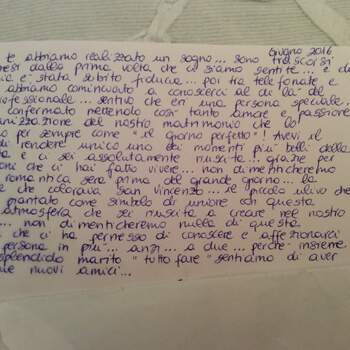 Giugno 2016
e abbiamo realizzato un sogno... sono trascorsi
mesi dalla prima volta che ci siamo sentite... e da
è stata subito fiducia... poi tra telefonate e
abbiamo cominciato a conoscerci al di la' del
professionale... sentivo che eri una persona speciale...
confermato mettendo così tanto amore e passione
organizzazione del nostro matrimonio che lo
per sempre come "il giorno perfetto"! Avevi il
di rendere unico uno dei momenti più belli della
vita e ci sei assolutamente riuscita... grazie per
che ci hai fatto vivere... non dimenticheremo
romantica sera prima del grande giorno... la
che colorava San Vincenzo... il piccolo ulivo che
piantato come simbolo di unione con questa
atmosfera che sei riuscita a creare nel nostro
... non dimenticheremo nulla di questa
che ci ha permesso di conoscere e affezionarci
persona in più... anzi... a due... perchè insieme
splendido marito "tutto fare" sentiamo di aver
nuovi amici...